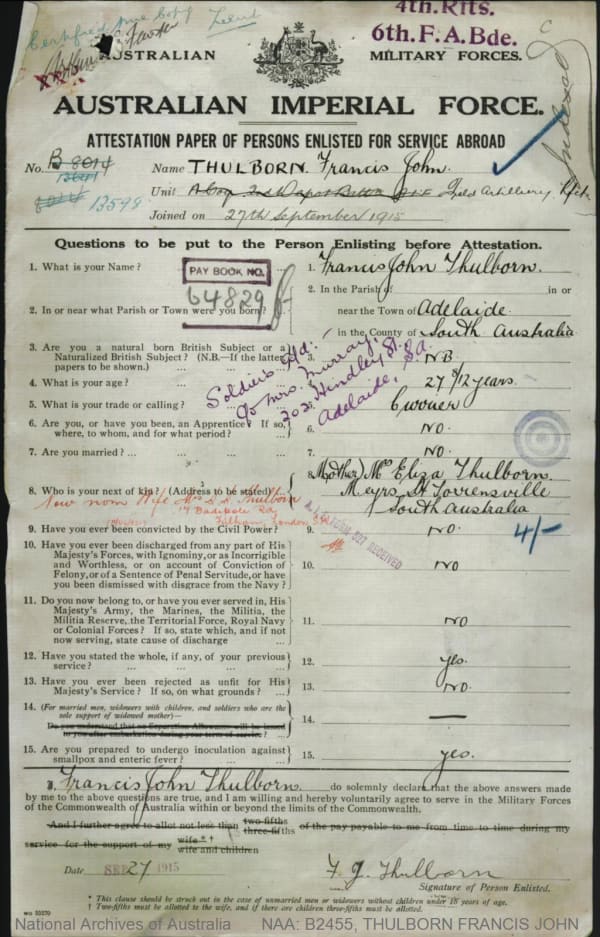 Certified true Copy
4th. Rfts.
6th. F. A. Bde.
AUSTRALIAN MILITARY FORCES.
AUSTRALIAN IMPERIAL FORCE.
ATTESTATION PAPER OF PERSONS ENLISTED FOR SERVICE ABROAD
No. B 8014 Name THULBORN. Francis John.
13598 Unit Field Artillery Rfts
Joined on 27th September 1915
Indexed
Questions to be put to the Person Enlisting before Attestation.
1. What is your Name? 1. Francis John Thulborn.
PAY BOOK NO.
64829
2. In or near what Parish or Town were you born? 2. In the Parish of in or
near the Town of Adelaide.
in the County of South Australia
3. Are you a natural born British Subject or a
Naturalized British Subject? (N.B.—If the latter
papers to be shown.) 3. N.B.
Soldiers Add:
c/o Mrs. Murray,
202 Hindley St.
Adelaide, SA.
4. What is your age? 4. 27 8/12 years.
5. What is your trade or calling? 5.
6. Are you, or have you been, an Apprentice? If so,
where, to whom, and for what period? 6. NO.
7. Are you married? 7. NO.
8. Who is your next of kin? (Address to be stated) 8. (Mother) Mrs Eliza Thulborn.
Meyrs St Torrensville
South Australia
Now nom Wife Mrs Thulborn
Fulham, London S.W.
9. Have you ever been convicted by the Civil Power? 9. NO.
4/-
10. Have you ever been discharged from any part of His
Majesty's Forces, with Ignominy, or as Incorrigible
and Worthless, or on account of Conviction of
Felony, or of a Sentence of Penal Servitude, or have
you been dismissed with disgrace from the Navy? 10. NO
11. Do you now belong to, or have you ever served in, His
Majesty's Army, the Marines, the Militia, the
Militia Reserve, the Territorial Force, Royal Navy
or Colonial Forces? If so, state which, and if not
now serving, state cause of discharge 11. NO
12. Have you stated the whole, if any, of your previous
service? 12. yes.
13. Have you ever been rejected as unfit for His
Majesty's Service? If so, on what grounds? 13. NO.
14. (For married men, widowers with children, and soldiers who are the
sole support of widowed mother)—
Do you understand that no Separation Allowance will be issued
to you after embarkation during your term of service? 14. —
15. Are you prepared to undergo inoculation against
smallpox and enteric fever? 15. yes.
I, Francis John Thulborn. do solemnly declare that the above answers made
by me to the above questions are true, and I am willing and hereby voluntarily agree to serve in the Military Forces
of the Commonwealth of Australia within or beyond the limits of the Commonwealth.
And I further agree to allot not less than two-fifths three-fifths of the pay payable to me from time to time during my
service for the support of my wife * † wife and children
Date SEP 27 1915 F. J. Thulborn
Signature of Person Enlisted.
* This clause should be struck out in the case of unmarried men or widowers without children under 18 years of age.
† Two-fifths must be allotted to the wife, and if there are children three-fifths must be allotted.
National Archives of Australia NAA: B2455, THULBORN FRANCIS JOHN